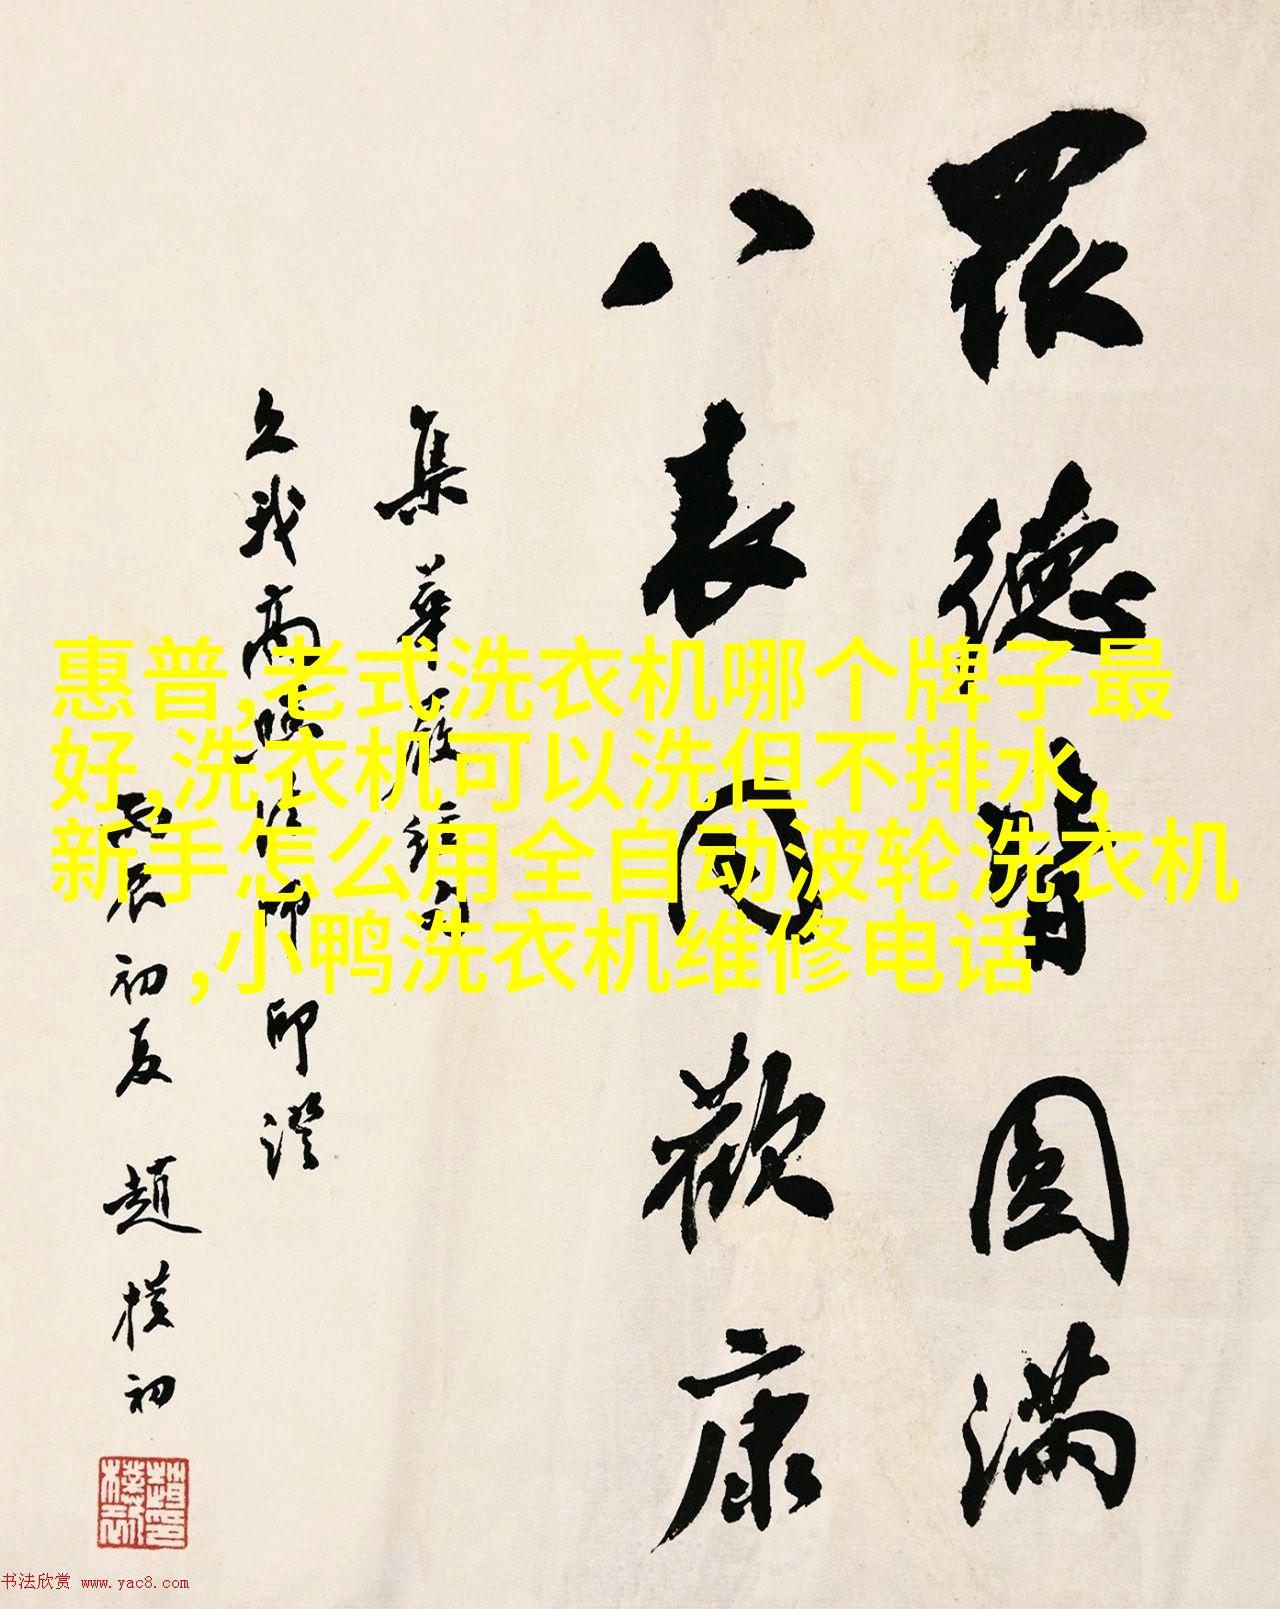 眾德圓滿
八表歡康
集華嚴經句
久我高照法师印證
丙辰初夏 趙樸初
惠普,老式洗衣机哪个牌子最
好,洗衣机可以洗但不排水,
新手怎么用全自动波轮洗衣机
,小鸭洗衣机维修电话
书法欣赏 www.yac8.com